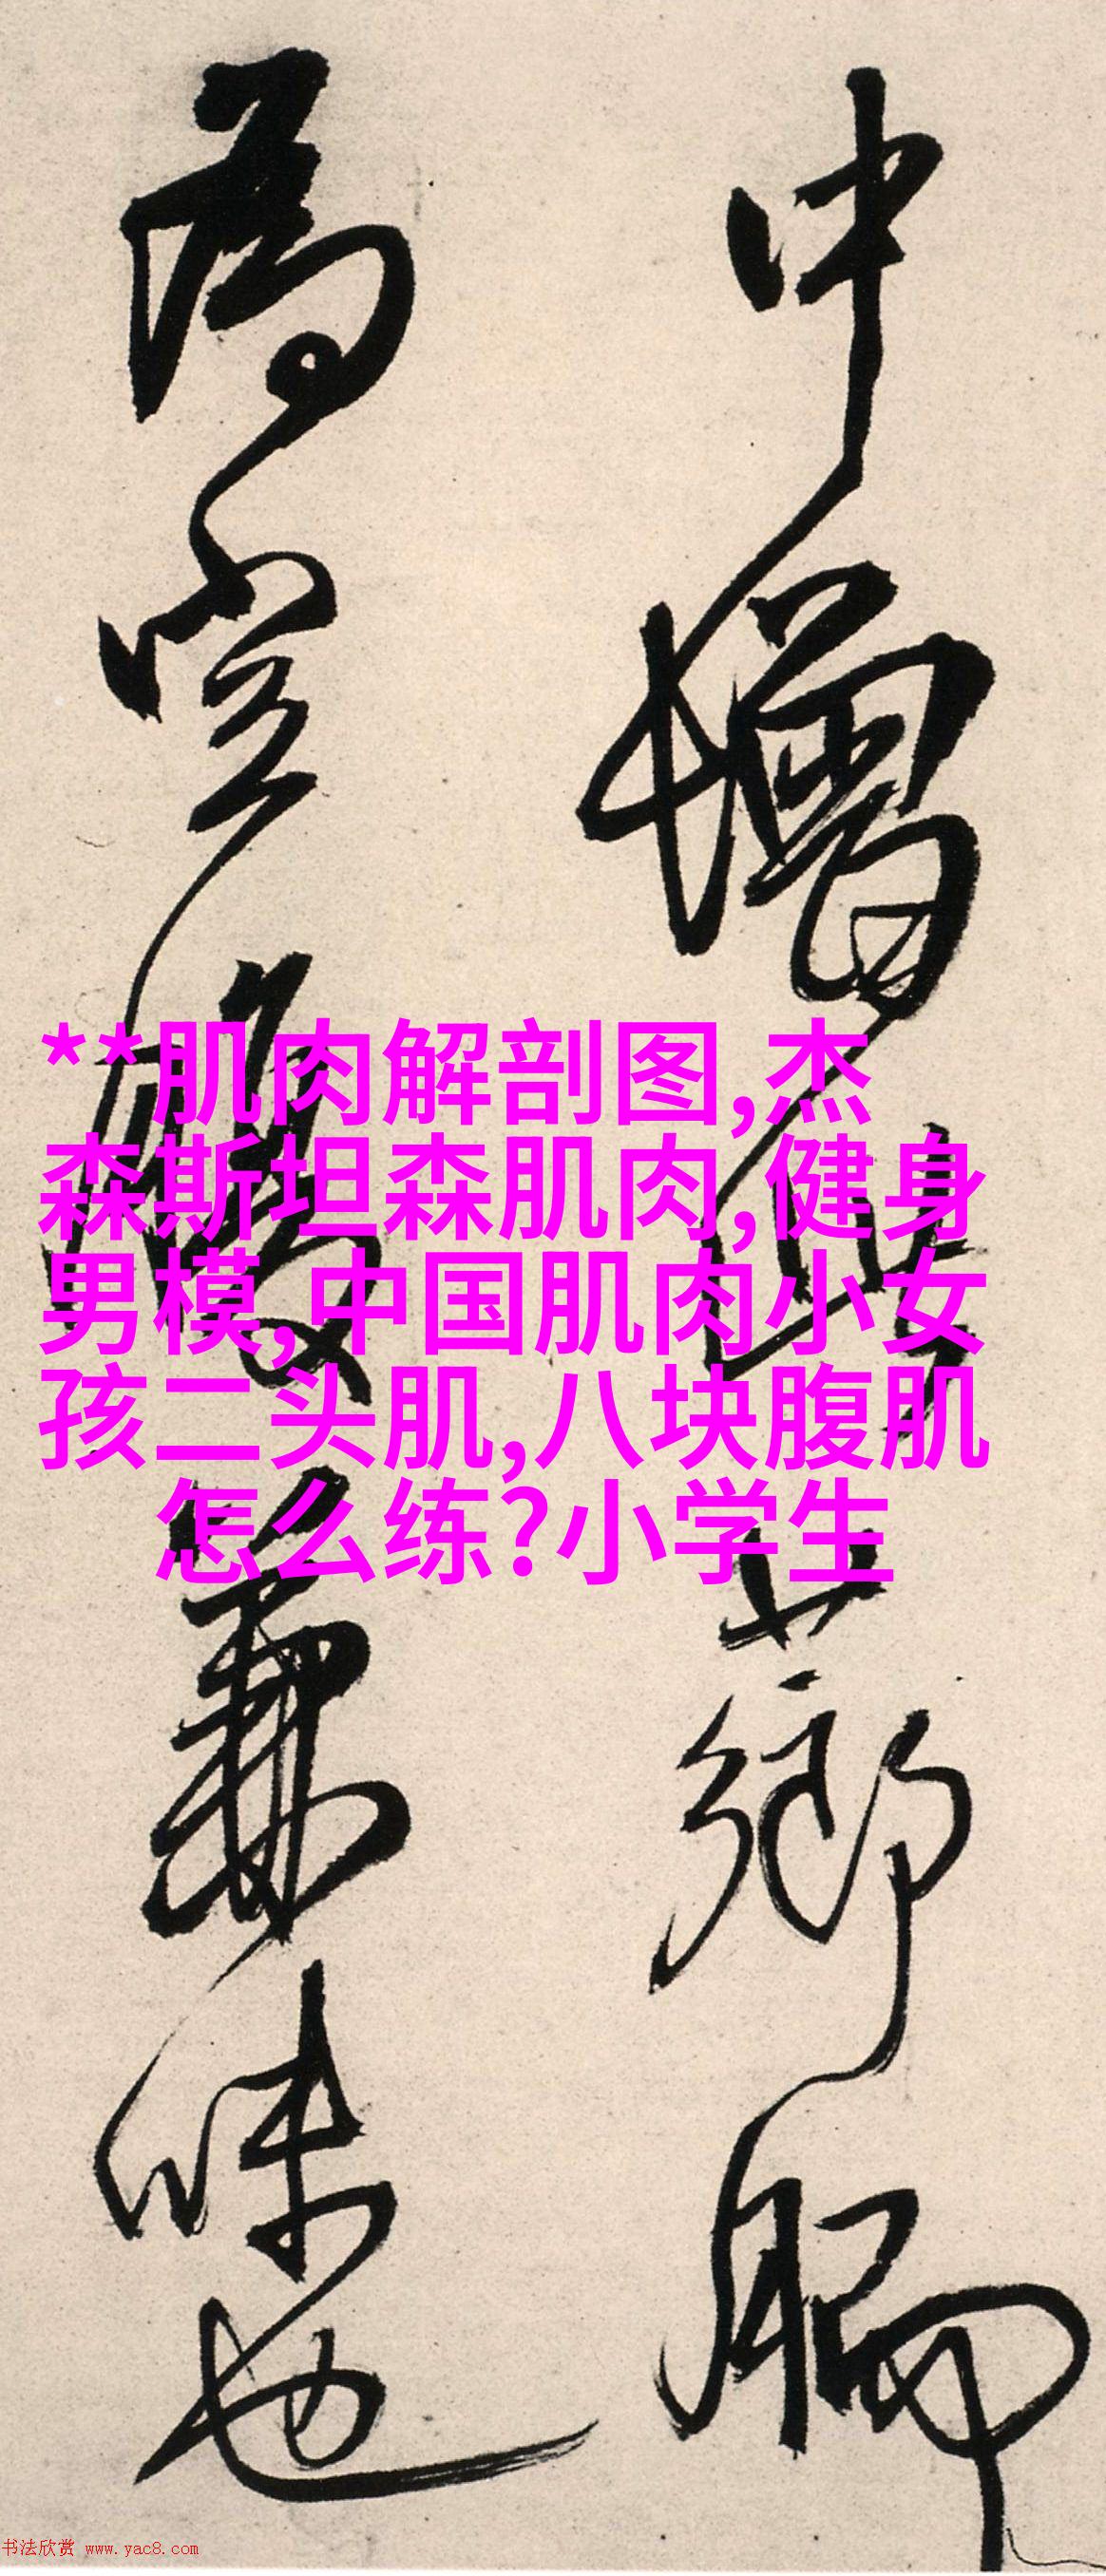 中增薌
為兼味也
**肌肉解剖图,杰
森斯坦森肌肉,健身
男模,中国肌肉小女
孩二头肌,八块腹肌
怎么练?小学生
书法欣赏 www.yac8.com